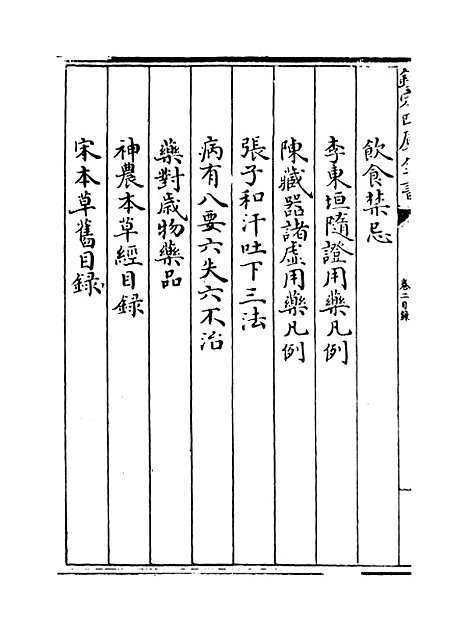 欽定四庫全書
卷二目錄
飲食禁忌
李東垣隨證用藥凡例
陳藏器諸虛用藥凡例
張子和汗吐下三法
病有八要六失六不治
藥對歲物藥品
神農本草經目錄
宋本草舊目録